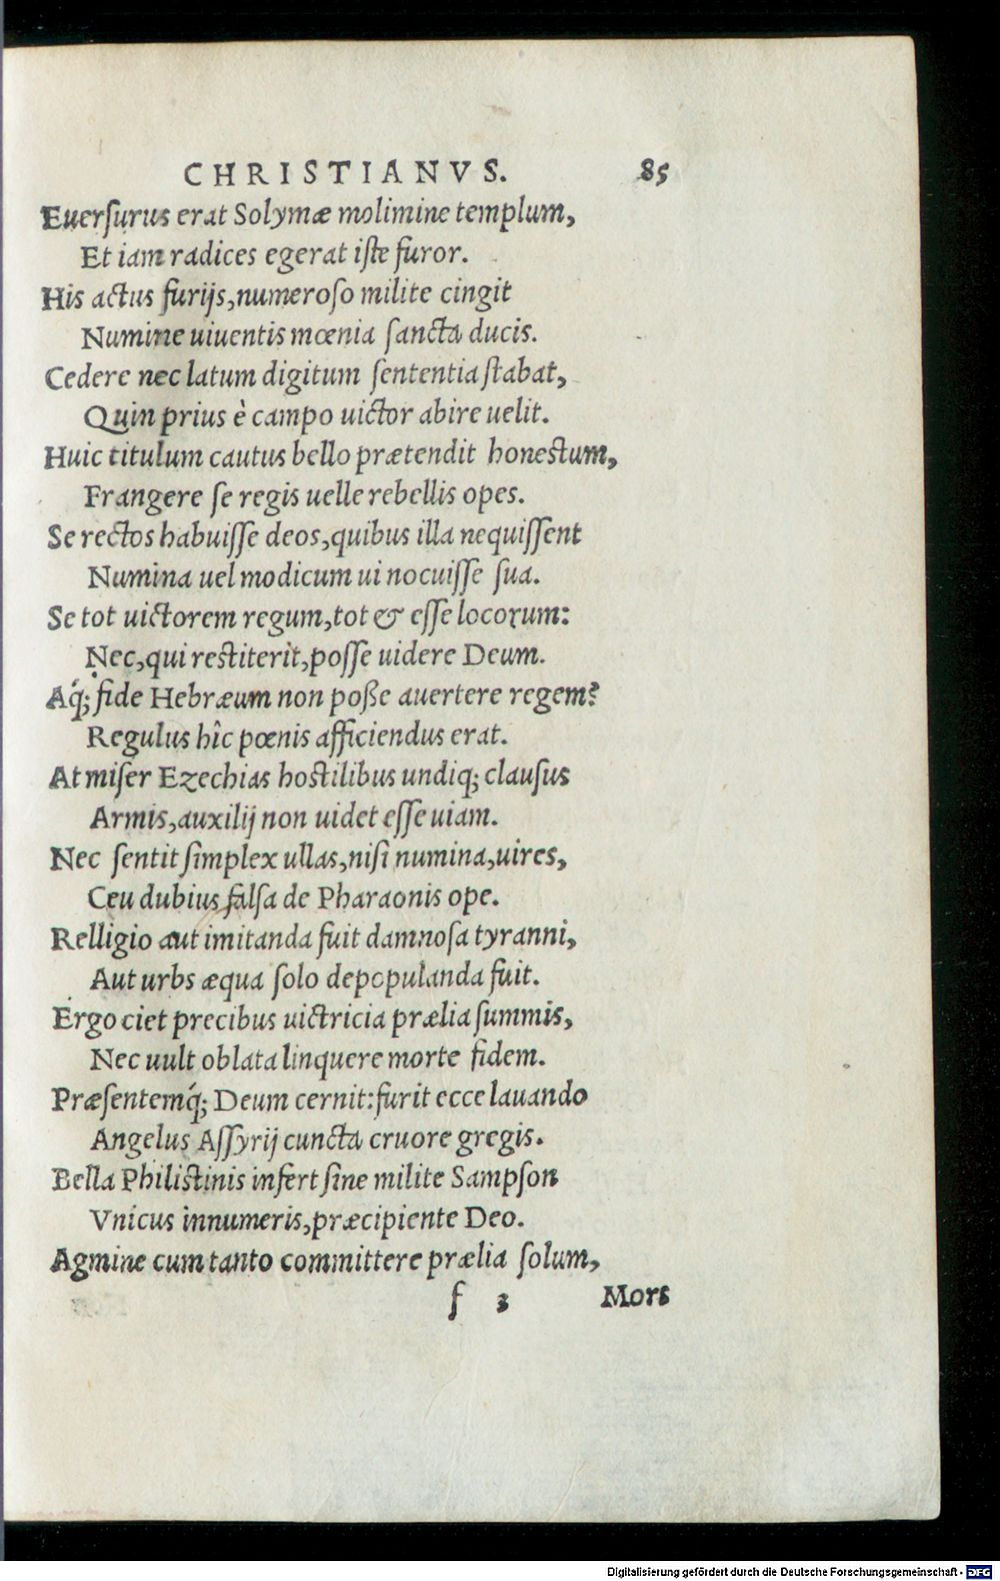 CHRISTIANVS. 85
Euerſurus erat Solymæ molimine templum,
Et iam radices egerat iſte furor.
His actus furijs, numeroſo milite cingit
Numine uiuentis mœnia ſancta ducis.
Cedere nec latum digitum ſententia ſtabat,
Quin prius è campo uictor abire uelit.
Huic titulum cautus bello prætendit honestum,
Frangere ſe regis uelle rebellis opes.
Se rectos habuiſſe deos, quibus illa nequiſſent
Numina uel modicum ui nocuiſſe ſua.
Se tot uictorem regum, tot & eſſe locorum:
Nec, qui restiterit, poſſe uidere Deum.
Aq́; fide Hebræum non poße auertere regem?
Regulus hîc pœnis afficiendus erat.
At miſer Ezechias hostilibus undiq; clauſus
Armis, auxilij non uidet eſſe uiam.
Nec ſentit ſimplex ullas, niſi numina, uires,
Ceu dubius falſa de Pharaonis ope.
Relligio aut imitanda fuit damnoſa tyranni,
Aut urbs æqua ſolo depopulanda fuit.
Ergo ciet precibus uictricia prælia ſummis,
Nec uult oblata linquere morte fidem.
Præſentemq́; Deum cernit: furit ecce lauando
Angelus Aſſyrij cuncta cruore gregis.
Bella Philistinis infert ſine milite Sampſon
Vnicus innumeris, præcipiente Deo.
Agmine cum tanto committere prælia ſolum,
f 3 Mors
Digitalisierung gefördert durch die Deutsche Forschungsgemeinschaft - DFG